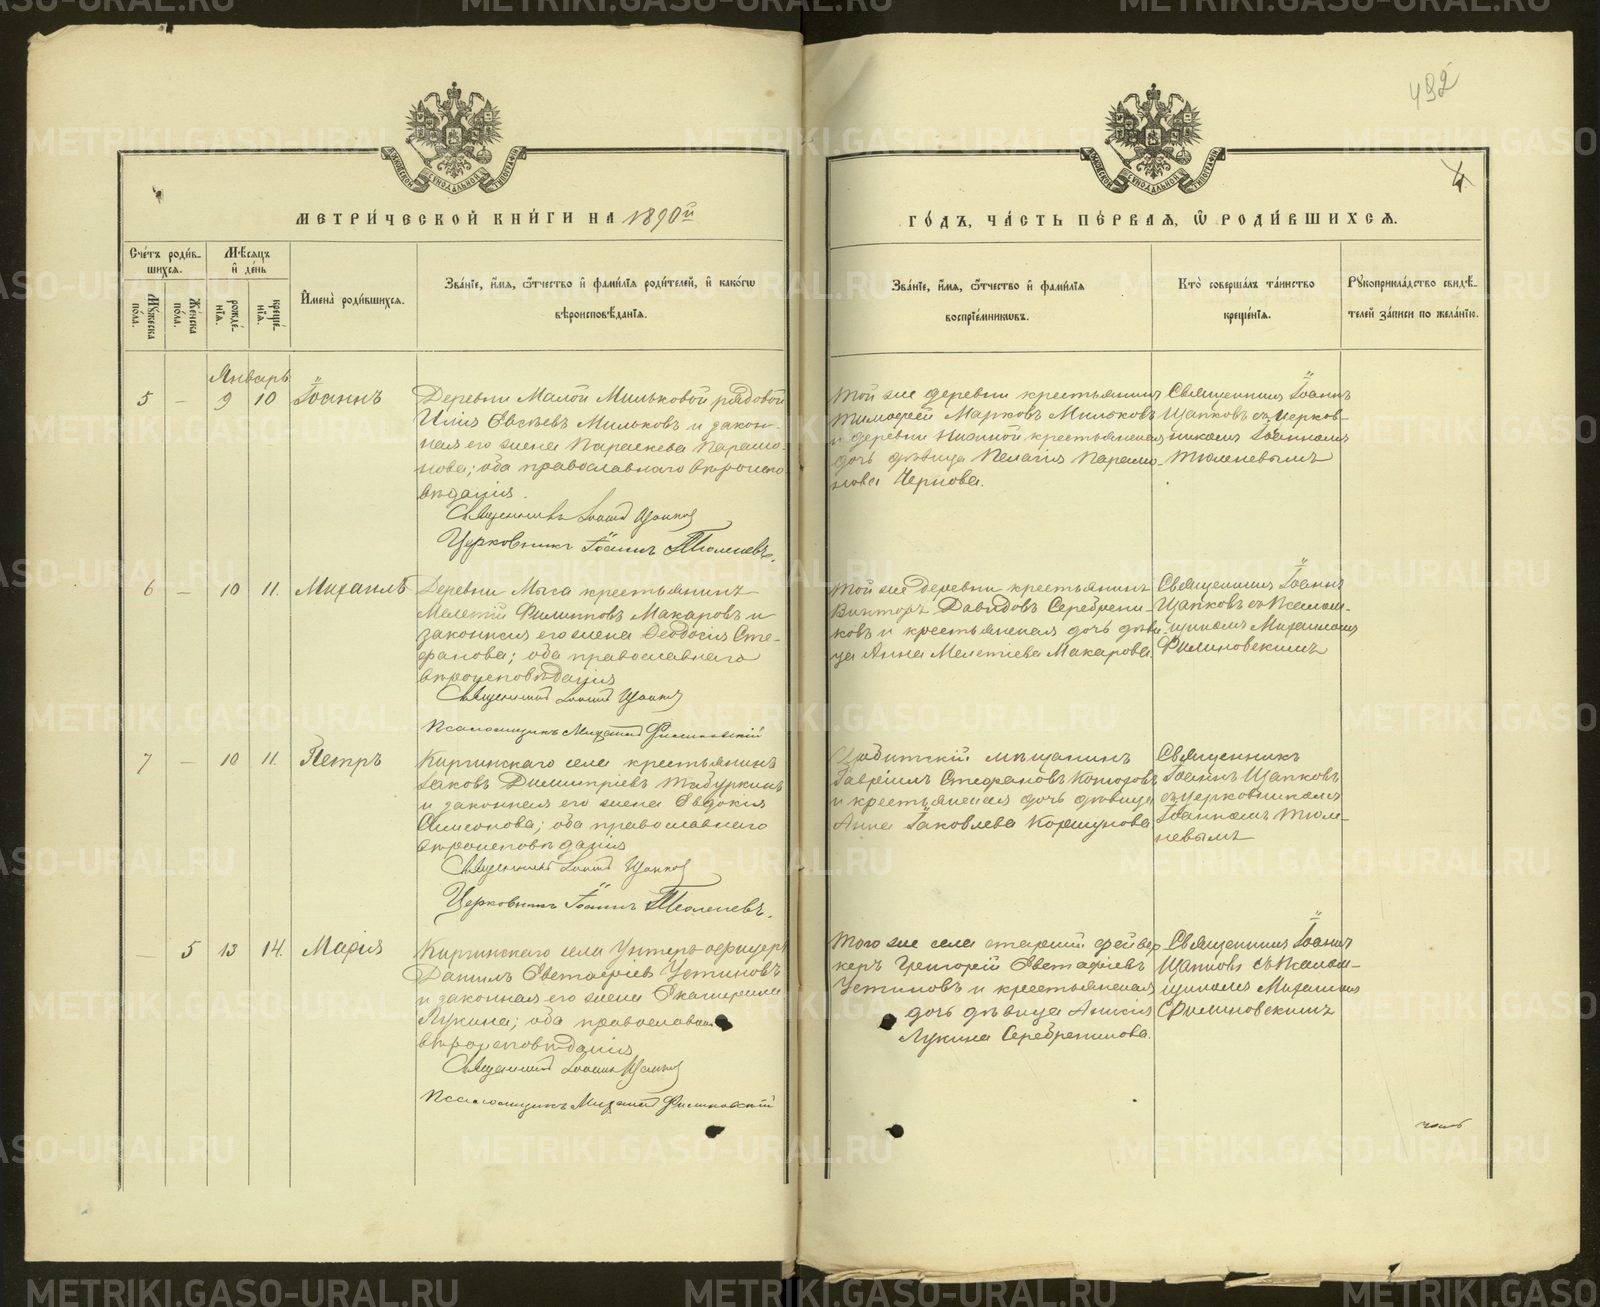 492
4
МЕТРИ́ЧЕСКОЙ КНИ́ГИ НА 1890й
ГО́ДЪ, ЧА́СТЬ ПЕ́РВАЯ, Ѡ҆ РОДИ́ВШИХСѦ.
Сче́тъ роди́в-
шихсѧ.
Мꙋ́жеска по́ла.
Же́нска по́ла.
Мѣ́сѧцъ и҆ де́нь
рожде́-нїѧ.
креще́-нїѧ.
И҆мена̀ роди́вшихсѧ.
Зва́нїе, и҆́мѧ, ѻ҆́тчество и҆ фами́лїѧ роди́телей, и҆ како́гѡ
вѣроисповѣ́данїѧ.
Зва́нїе, и҆́мѧ, ѻ҆́тчество и҆ фами́лїѧ
воспрїе́мникѡвъ.
Кто̀ соверша́лъ та́инство
креще́нїѧ.
Рꙋкоприкла́дство свидѣ́-
телей за́писи по жела́нїю.
Январь
5 — 9 10 Іоаннъ
Деревни Малой Мильковой рядовой
Илія Евсѣевъ Мильковъ и закон-
ная его жена Параскева Парамо-
нова; оба православнаго вѣроиспо-
вѣданія.
Священникъ Іоаннъ Щапковъ
Церковникъ Іоаннъ Тюленевъ.
Той же деревни крестьянинъ
Тимофей Марковъ Мильковъ
и деревни Нижной крестьянская
дочь дѣвица Пелагія Парамо-
нова Чернова.
Священникъ Іоаннъ
Щапковъ съ церков-
никомъ Іоанномъ
Тюленевымъ
6 — 10 11. Михаилъ
Деревни Мыса крестьянинъ
Мелетій Филипповъ Макаровъ и
законная его жена Ѳеодосія Сте-
фанова; оба православнаго
вѣроисповѣданія
Священникъ Іоаннъ Щапковъ
Псаломщикъ Михаилъ Филиновскій
Той же деревни крестьянинъ
Викторъ Давыдовъ Серебрени-
ковъ и крестьянская дочь дѣви-
ца Анна Мелетиева Макарова.
Священникъ Іоаннъ
Щапковъ съ Псалом-
щикомъ Михаиломъ
Филиновскимъ
7 — 10 11. Петръ
Киргинскаго села крестьянинъ
Іаковъ Димитріевъ Табуркинъ
и законная его жена Евдокія
Симеонова; оба православнаго
вѣроисповѣданія
Священникъ Іоаннъ Щапковъ
Церковникъ Іоаннъ Тюленевъ.
Ирбитскій мѣщанинъ
Гавріилъ Стефановъ
и крестьянская дочь дѣвица
Анна Іаковлева Коршунова
Священникъ
Іоаннъ Щапковъ
съ церковникомъ
Іоанномъ Тюле-
невымъ
— 5 13 14. Марія
Киргинскаго села Унтеръ-офицеръ
Даніилъ Евстафіевъ Устиновъ
и законная его жена Екатерина
Лукина; оба православнаго
вѣроисповѣданія
Священникъ Іоаннъ Щапковъ
Псаломщикъ Михаилъ Филиновскій
Того же села старшій фейвер-
керъ Григорій Евстафіевъ
Устиновъ и крестьянская
дочь дѣвица Анисія
Лукина Серебренникова.
Священникъ Іоаннъ
Щапковъ съ Псалом-
щикомъ Михаиломъ
Филиновскимъ
METRIKI.GASO-URAL.RU